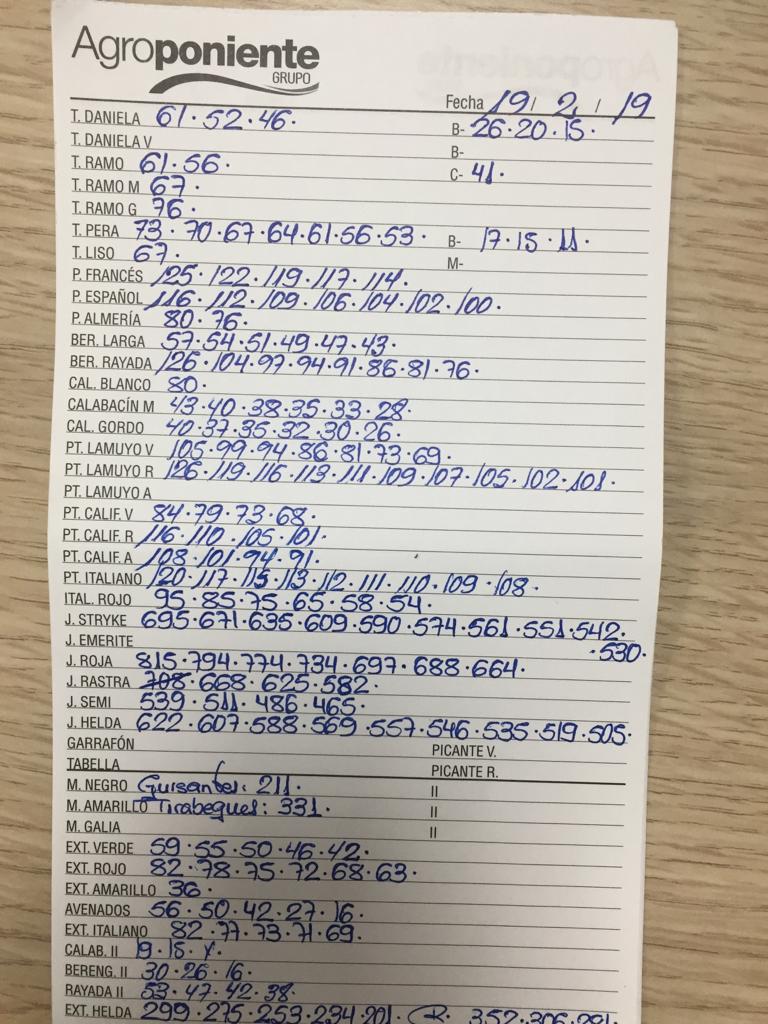 Agroponiente
GRUPO
Fecha 19/ 2 / 19
T. DANIELA 61.52.46. B- 26.20.15.
T. DANIELA V B-
T. RAMO 61.56. C- 41.
T. RAMO M 67.
T. RAMO G 76.
T. PERA 73.70.67.64.61.56.53. B- 17.15.11.
T. LISO 67. M-
P. FRANCÉS 125.122.119.117.114.
P. ESPAÑOL 116.112.109.106.104.102.100.
P. ALMERÍA 80.76.
BER. LARGA 57.54.51.49.47.43.
BER. RAYADA 126.104.97.94.91.86.81.76.
CAL. BLANCO 80.
CALABACÍN M 43.40.38.35.33.28.
CAL. GORDO 40.37.35.32.30.26.
PT. LAMUYO V 105.99.94.86.81.73.69.
PT. LAMUYO R 126.119.116.113.111.109.107.105.102.101.
PT. LAMUYO A
PT. CALIF. V 84.79.73.68.
PT. CALIF. R 116.110.105.101.
PT. CALIF. A 108.101.94.91.
PT. ITALIANO 120.117.115.113.112.111.110.109.108.
ITAL. ROJO 95.85.75.65.58.54.
J. STRYKE 695.671.635.609.590.574.561.551.542.
J. EMERITE .530.
J. ROJA 815.794.774.734.697.688.664.
J. RASTRA 708.668.625.582.
J. SEMI 539.511.486.465.
J. HELDA 622.607.588.569.557.546.535.519.505.
GARRAFÓN PICANTE V.
TABELLA PICANTE R.
M. NEGRO Guisantes: 211. II
M. AMARILLO Tirabeques: 331. II
M. GALIA II
EXT. VERDE 59.55.50.46.42.
EXT. ROJO 82.78.75.72.68.63.
EXT. AMARILLO 36.
AVENADOS 56.50.42.27.16.
EXT. ITALIANO 82.77.73.71.69.
CALAB. II 19.15.
BERENG. II 30.26.16.
RAYADA II 53.47.42.38.
EXT. HELDA 299.275.253.234.201. R. 352.306.281.